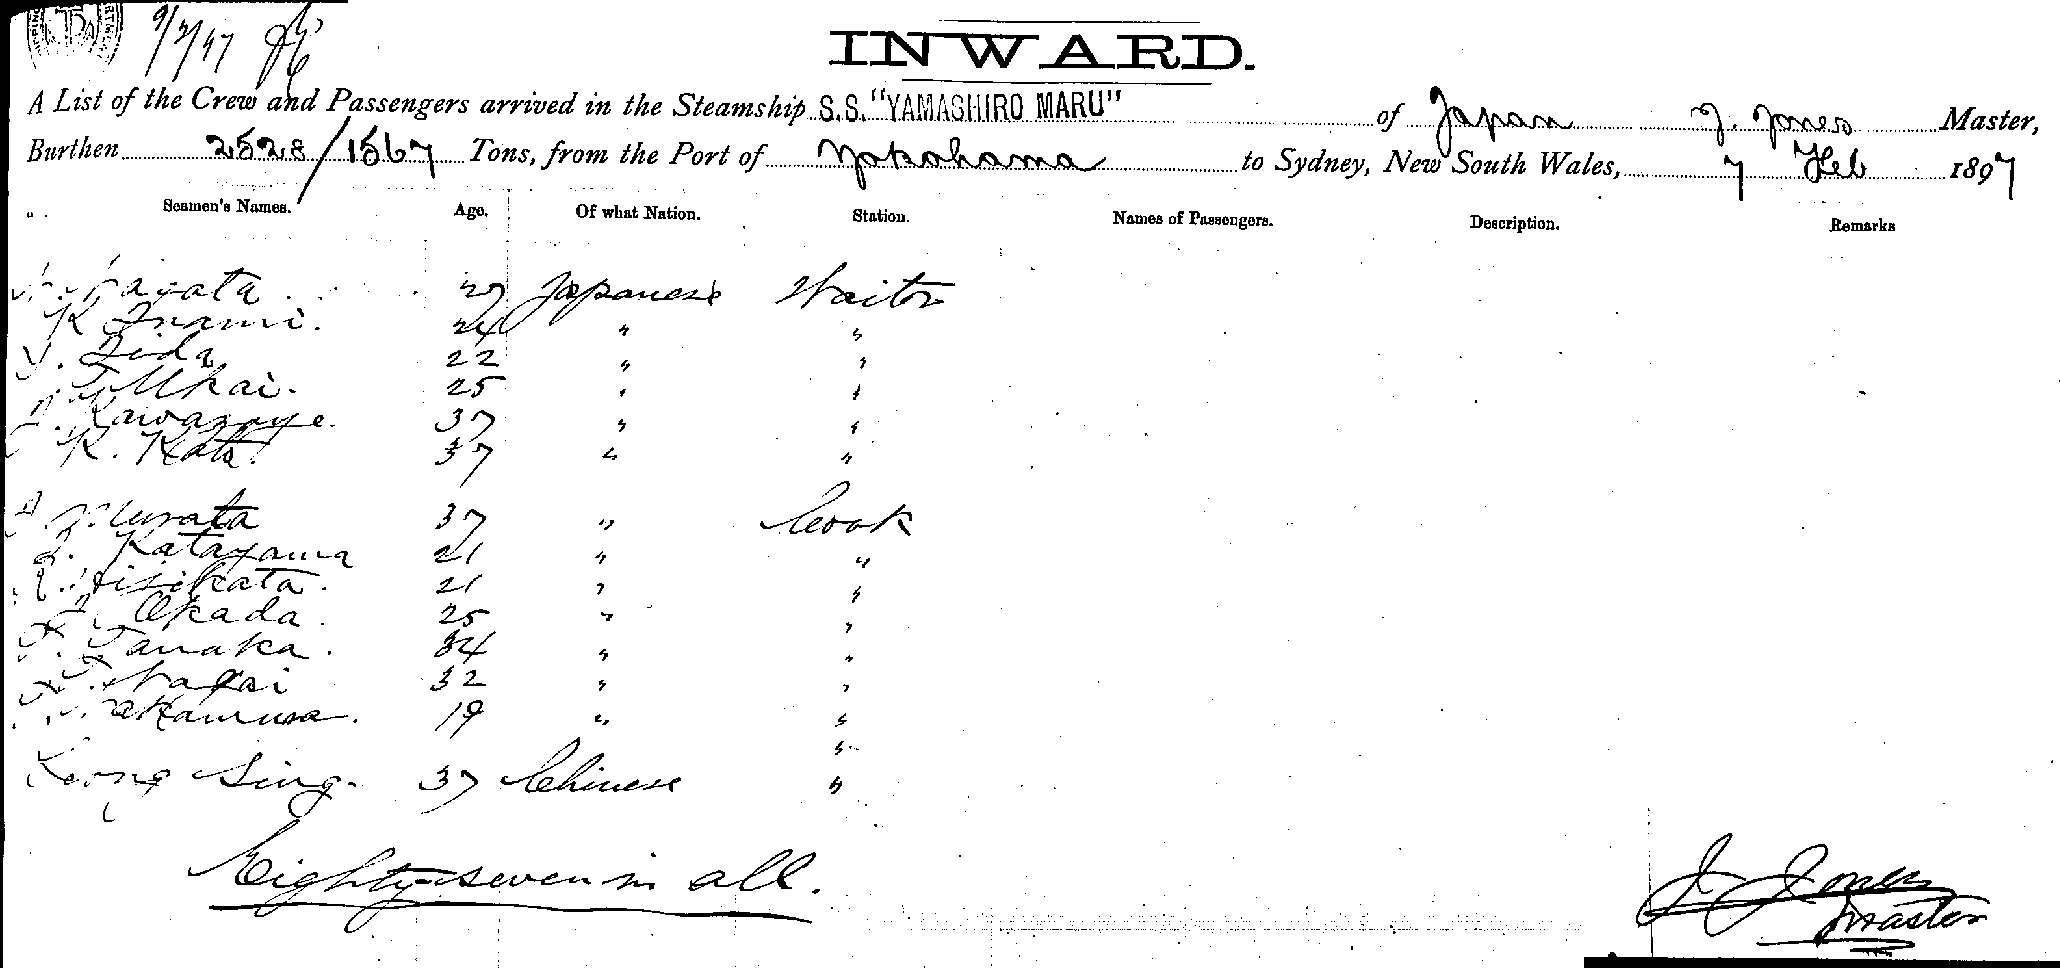 9/2/97
INWARD.
A List of the Crew and Passengers arrived in the Steamship S.S. "YAMASHIRO MARU" of Japan J. Jones Master,
Burthen 2528/1567 Tons, from the Port of Yokohama to Sydney, New South Wales, 7 Feb 1897
Seamen's Names. Age. Of what Nation. Station. Names of Passengers. Description. Remarks
27 Japanese Waiter
K Inami. 24 " "
Y. Iida 22 " "
Mkai. 25 " "
37 " "
K. Kato 37 " "
Murata 37 " Cook
Katayama 21 " "
Hisikata. 21 " "
Okada. 25 " "
F. Tanaka. 34 " "
Nagai 32 " "
Nakamura. 19 " "
"
Leong Sing. 37 Chinese "
Eighty-seven in all.
J Jones
Master